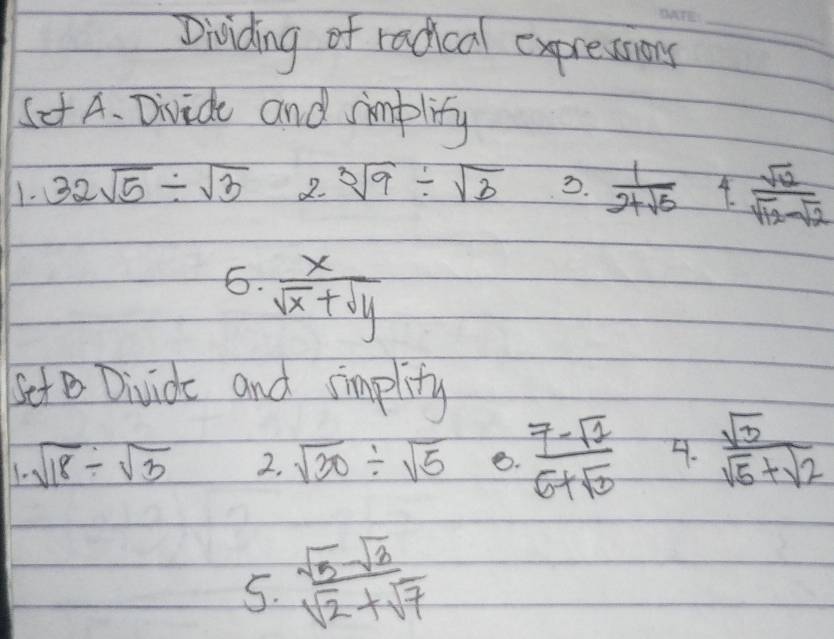 DATE:
Dividing of radical expressions
Set A. Divide and simplify
1. 32√5 ÷ √3 2. ∛9 ÷ √3 3. 1/(2+√5) 4. √12/(√12-√2)
5. x/(√x + √y)
Set B Divide and simplify
1. √18 ÷ √3 2. √30 ÷ √5 3. (7-√2)/(5+√3) 4. √3/(√5+√2)
5. (√5-√3)/(√2+√7)